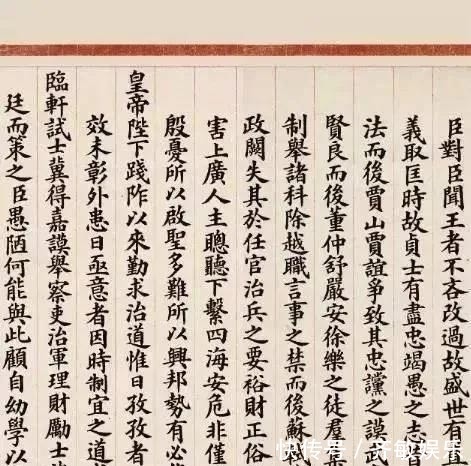 臣對臣聞王者不吝改過故盛世有
義取匡時故貞士有盡忠竭愚之志
法而後賈山賈誼爭致其忠讜之謨
賢良而後董仲舒嚴安徐樂之徒羣
制舉諸科除越職言事之禁而後蘇
政闕失其於任官治兵之要裕財正俗
害上廣人主聰聽下繫四海安危非僅
殷憂所以啟聖多難所以興邦勢有必
皇帝陛下踐阼以來勤求治道惟日孜孜者
效未彰外患日亟意者因時制宜之道
臨軒試士冀得嘉謨舉察吏治軍理財勵士
廷而策之臣愚陋何能與此顧自幼學以
快传号